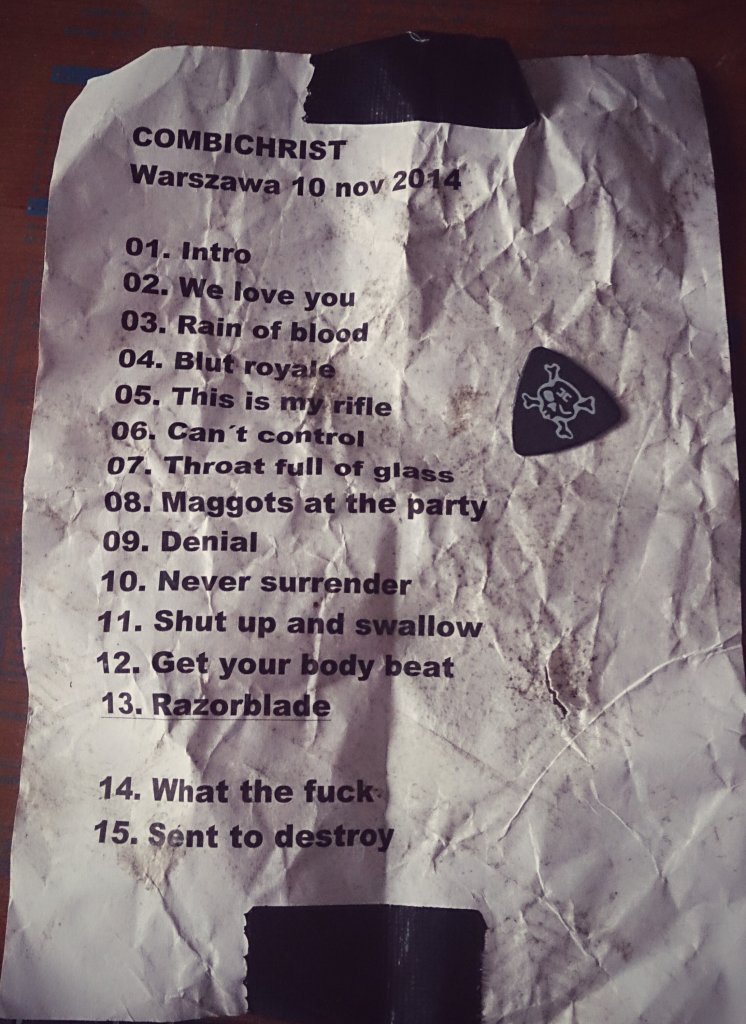 COMBICHRIST
Warszawa 10 nov 2014
01. Intro
02. We love you
03. Rain of blood
04. Blut royale
05. This is my rifle
06. Can´t control
07. Throat full of glass
08. Maggots at the party
09. Denial
10. Never surrender
11. Shut up and swallow
12. Get your body beat
13. Razorblade
14. What the fuck
15. Sent to destroy